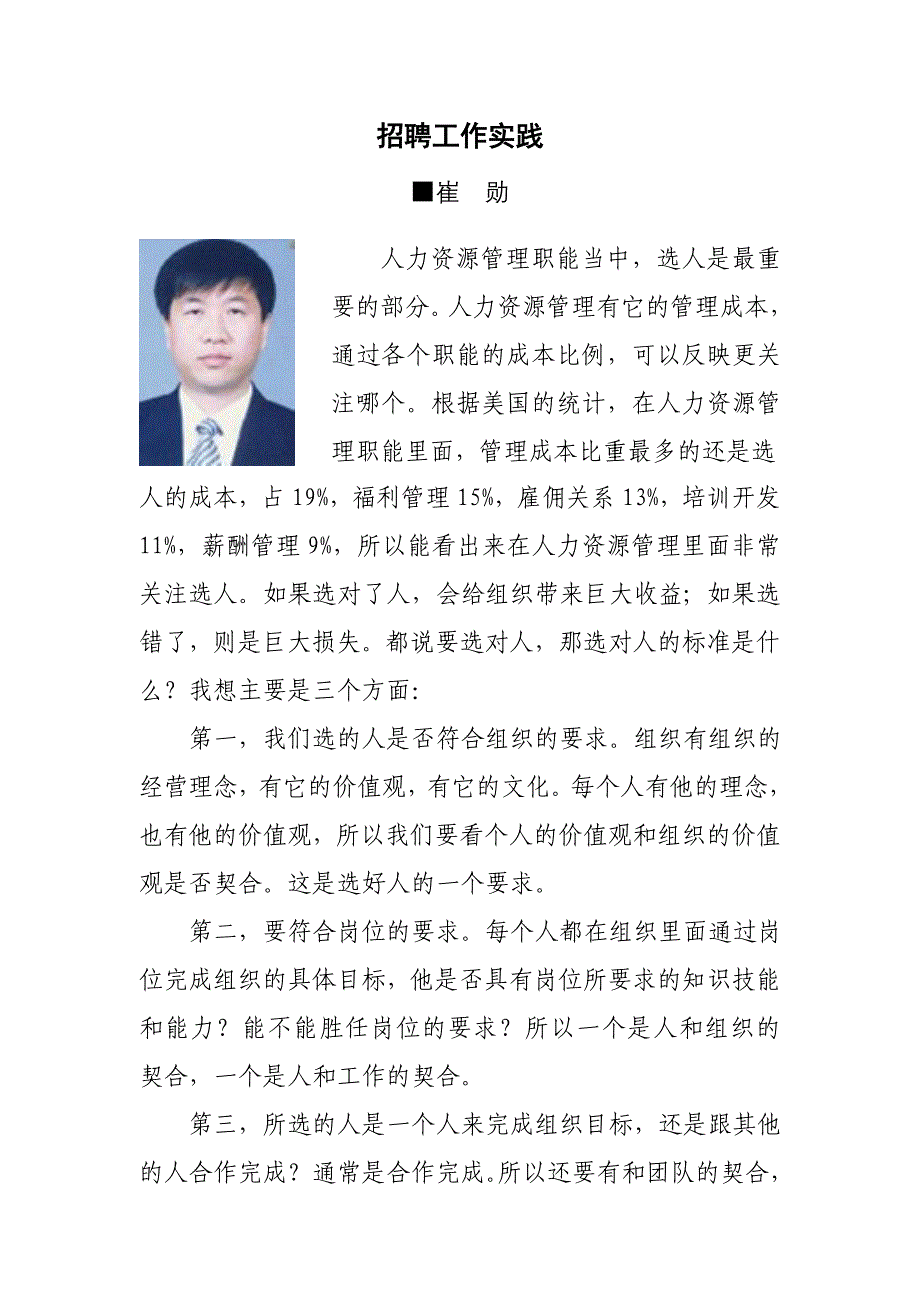 招聘工作实践
■崔　勋
人力资源管理职能当中，选人是最重
要的部分。人力资源管理有它的管理成本，
通过各个职能的成本比例，可以反映更关
注哪个。根据美国的统计，在人力资源管
理职能里面，管理成本比重最多的还是选
人的成本，占 19%，福利管理 15%，雇佣关系 13%，培训开发
11%，薪酬管理 9%，所以能看出来在人力资源管理里面非常
关注选人。如果选对了人，会给组织带来巨大收益；如果选
错了，则是巨大损失。都说要选对人，那选对人的标准是什
么？我想主要是三个方面：
第一，我们选的人是否符合组织的要求。组织有组织的
经营理念，有它的价值观，有它的文化。每个人有他的理念，
也有他的价值观，所以我们要看个人的价值观和组织的价值
观是否契合。这是选好人的一个要求。
第二，要符合岗位的要求。每个人都在组织里面通过岗
位完成组织的具体目标，他是否具有岗位所要求的知识技能
和能力？能不能胜任岗位的要求？所以一个是人和组织的
契合，一个是人和工作的契合。
第三，所选的人是一个人来完成组织目标，还是跟其他
的人合作完成？通常是合作完成。所以还要有和团队的契合，